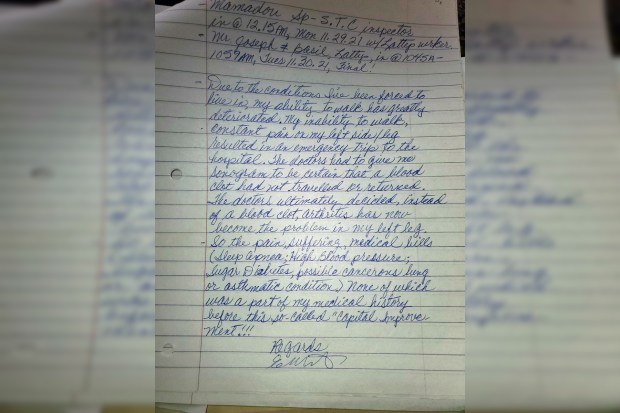 - Mamadou Sp- S.T.C inspector
in @ 12.15PM, Mon 11.29.21 w/ Lattip worker
- Mr Joseph & Basil, Lattip, in @
1059AM, Tues 11.30.21, Final!
- Due to the conditions I've been forced to
live in, my ability to walk has greatly
deteriorated. My inability to walk,
- constant pain on my left side/leg
resulted in an emergency trip to the
hospital. The doctors had to give me
sonogram to be certain that a blood
clot had not travelled or returned.
The doctors ultimately decided, instead
of a blood clot, arthritis has now
become the problem in my left leg.
- So the pain, suffering, medical bills
(Sleep Apnea, High Blood pressure,
Sugar Diabetes, possible cancerous lung
or asthmatic condition) None of which
was a part of my medical history
before this so-called "Capital Improve
Ment!!!
Regards